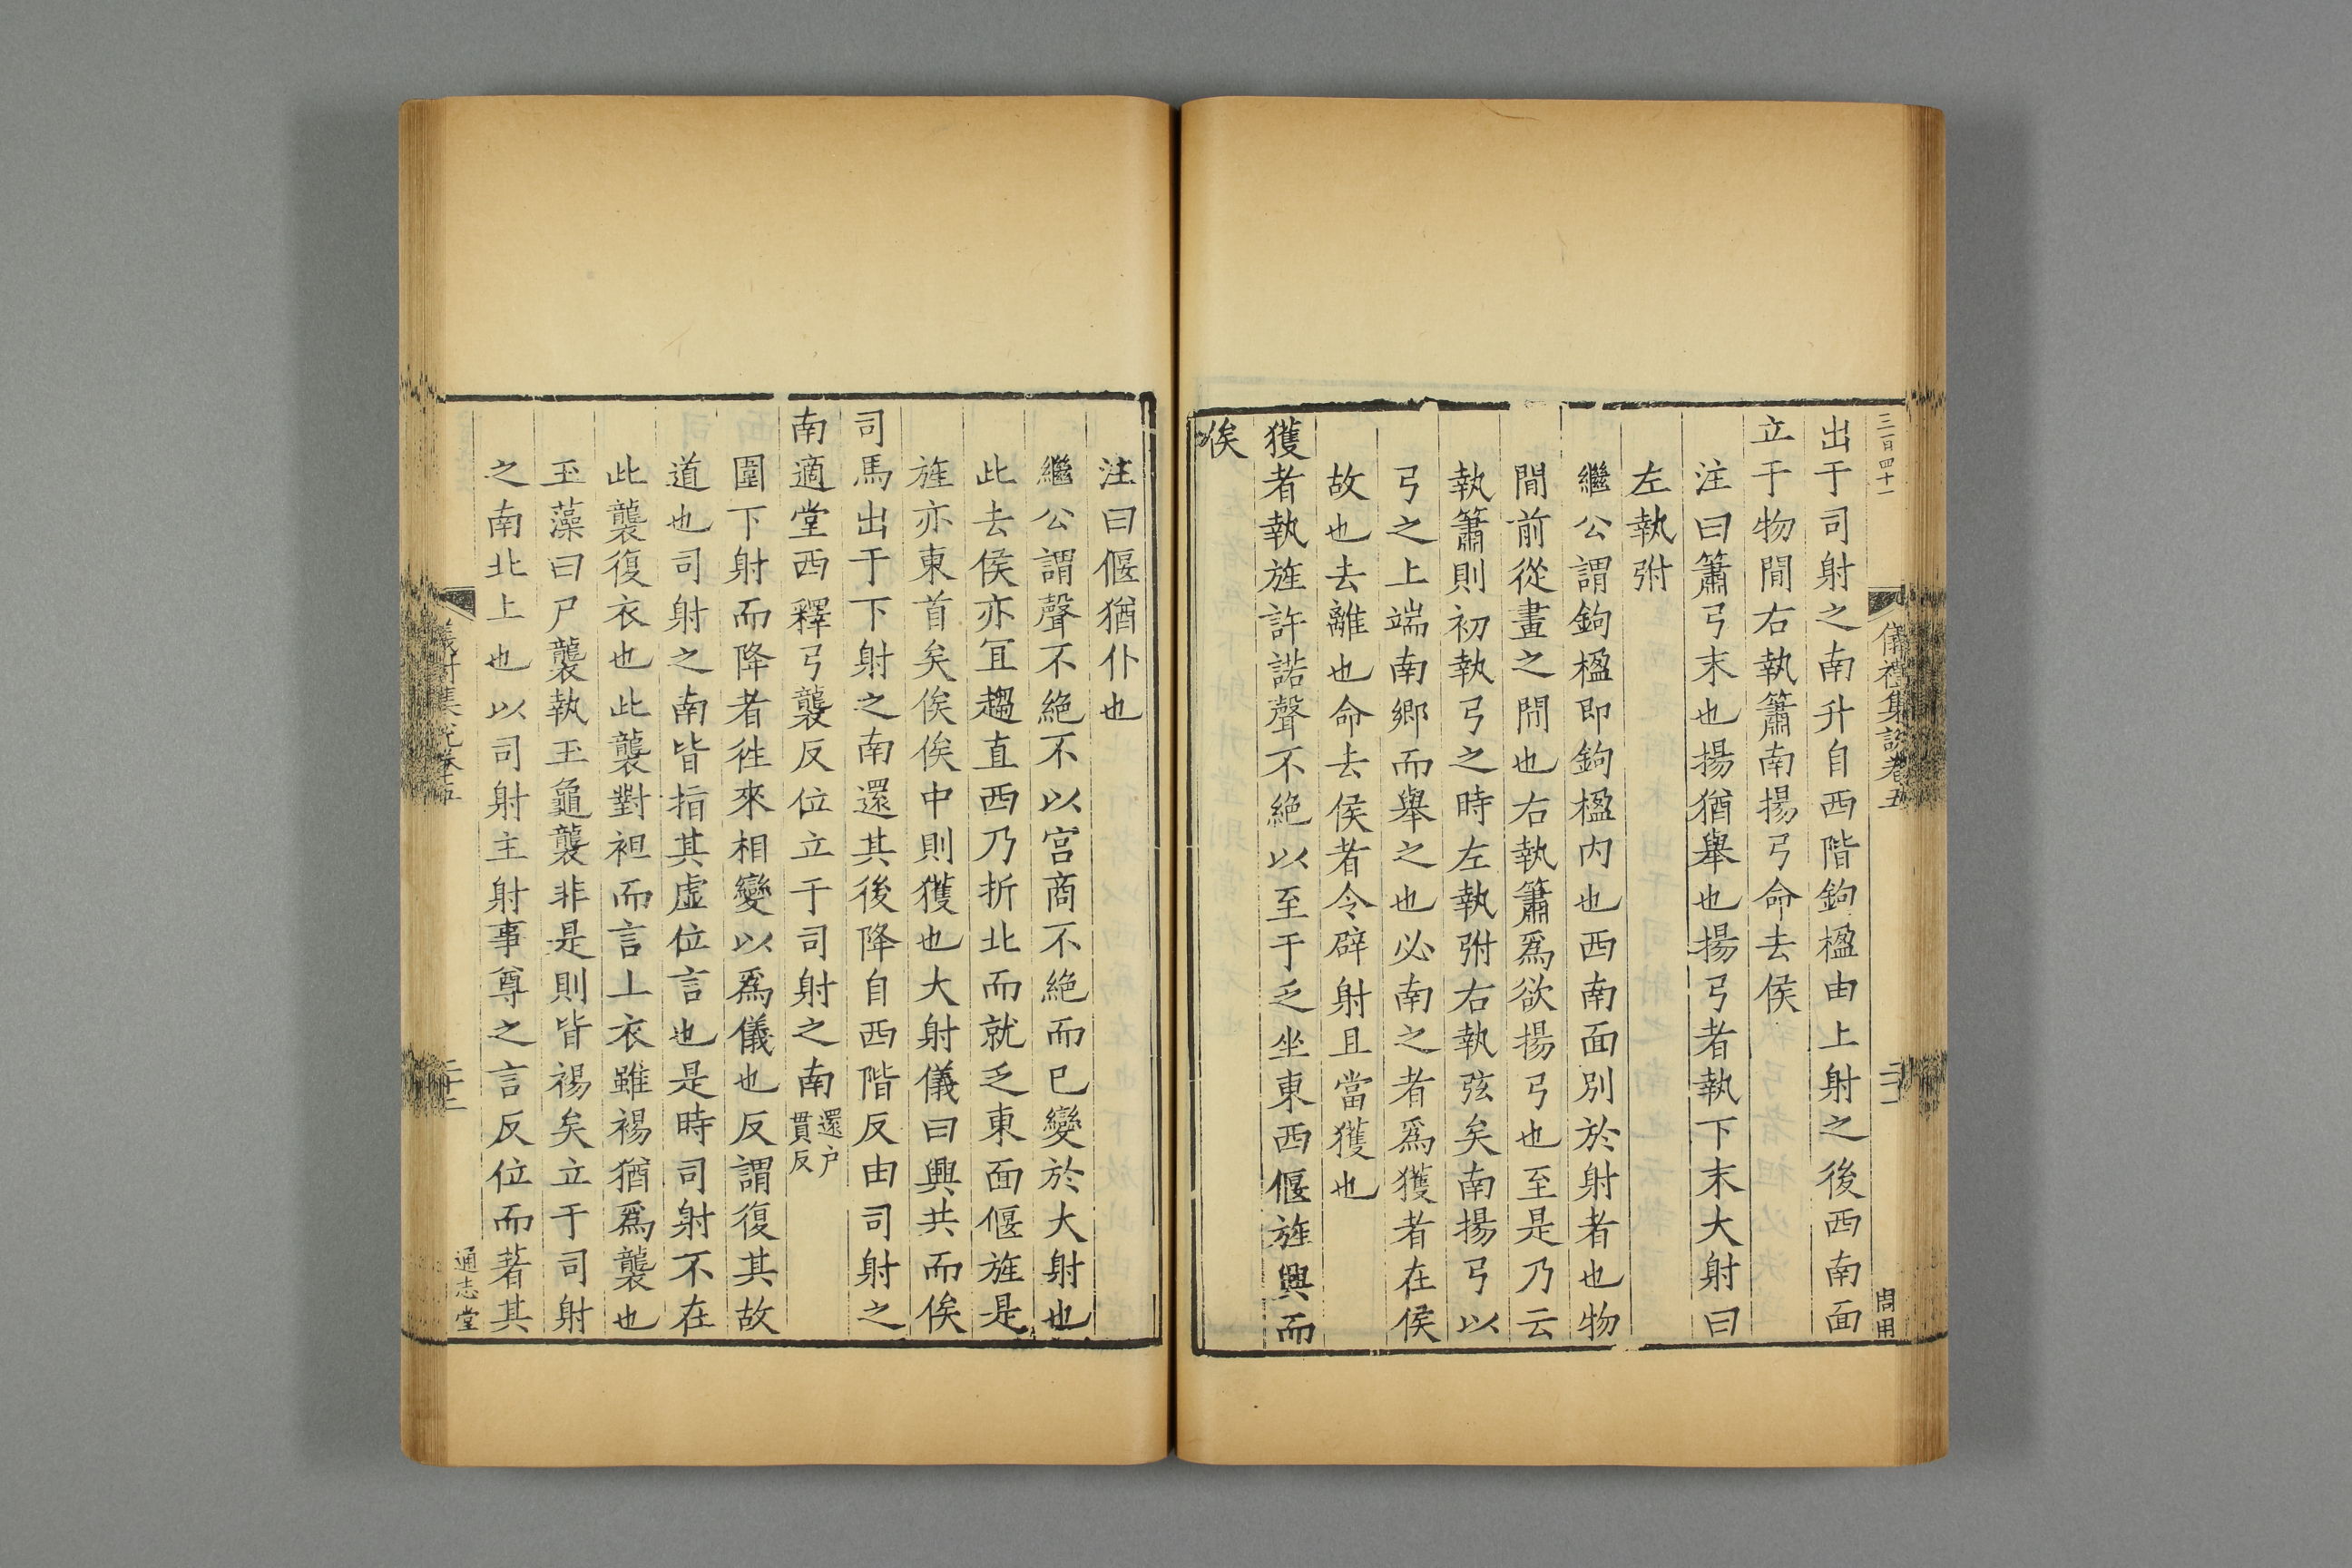 三百四十一
儀禮集說卷五
周用
出于司射之南升自西階鉤楹由上射之後西南面
立于物間右執簫南揚弓命去侯
注曰簫弓末也揚猶舉也揚弓者執下末大射曰
左執弣
繼公謂鉤楹即鉤楹内也西南面別於射者也物
間前從畫之間也右執簫爲欲揚弓也至是乃云
執簫則初執弓之時左執弣右執弦矣南揚弓以
弓之上端南鄉而舉之也必南之者爲獲者在侯
故也去離也命去侯者令辟射且當獲也
獲者執旌許諾聲不絶以至于乏坐東面偃旌興而
俟
注曰偃猶仆也
繼公謂聲不絶不以宮商不絶而已變於大射也
此去侯亦宜趨直西乃折北而就乏東面偃旌是
旌亦東首矣俟俟中則獲也大射儀曰興共而俟
司馬出于下射之南還其後降自西階反由司射之
南適堂西釋弓襲反位立于司射之南還户貫反
圍下射而降者徃來相變以爲儀也反謂復其故
道也司射之南皆指其虛位言也是時司射不在
此襲復衣也此襲對袒而言上衣雖裼猶爲襲也
玉藻曰尸襲執玉龜襲非是則皆裼矣立于司射
之南北上也以司射主射事尊之言反位而著其
通志堂